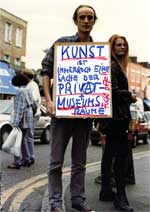 KUNST
IST
IMMER NOCH EINE
SACHE DER
PRIVAT-
+
MUSEUMS
RÄUME